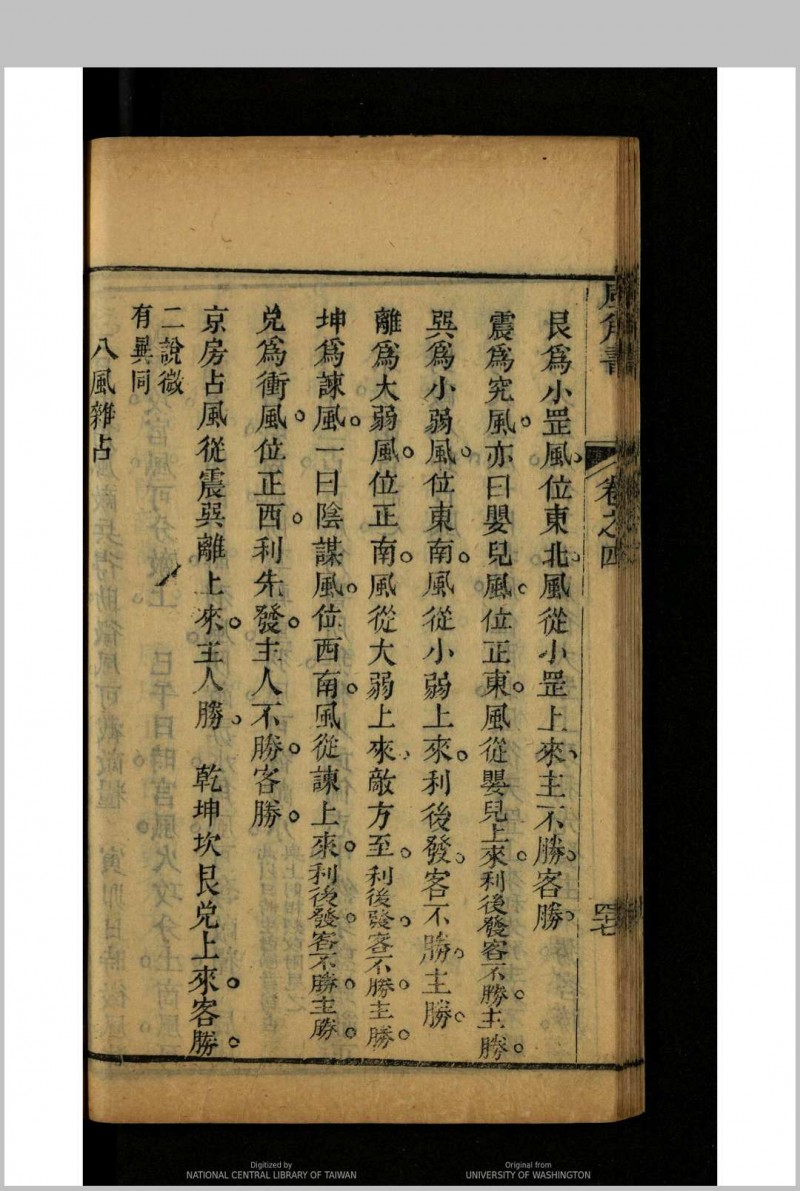 風角書 卷之四
艮爲小罡風位東北風從小罡上來主不勝客勝
震爲究風亦曰嬰兒風位正東風從嬰兒上來利後發客不勝主勝
巽爲小弱風位東南風從小弱上來利後發客不勝主勝
離爲大弱風位正南風從大弱上來敵方至利後發客不勝主勝
坤爲諫風一曰陰謀風位西南風從諫上來利後發客不勝主勝
兌爲衝風位正西利先發主人不勝客勝
京房占風從震巽離上來主人勝　乾坤坎艮兌上來客勝
二說微
有異同
八風雜占
Digitized by
NATIONAL CENTRAL LIBRARY OF TAIWAN
Original from
UNIVERSITY OF WASHINGTON